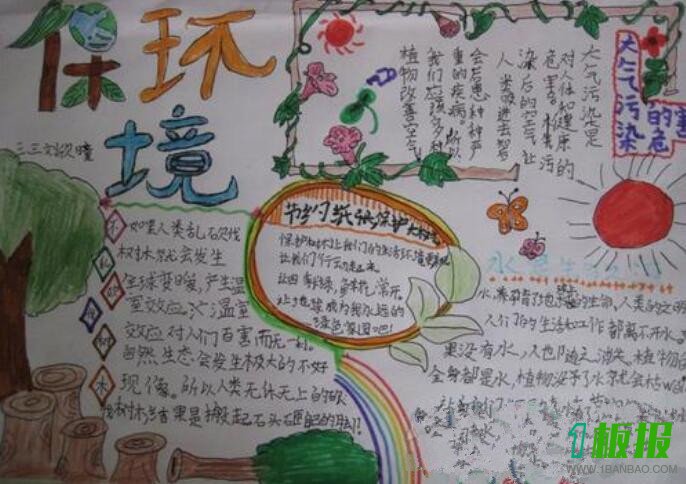 保环
境
三三文欣曈
大气污染的危害
大气污染是
对人体和健康
危害。朴素污
染后的空气让
人类吸进去后
会后患种种严
重的疾病。所以
我们应该多种
植物改善空气
节约纸张保护大树
保护树木让我们的生活环境更美
让我们行动起来
让四季常绿,鲜花常开。
让地球成为我永远的
绿色家园吧!
不
乱
砍
树
木
如果人类乱砍伐
树木就会发生
全球变暖,产生温
室效应。亡温室
效应对人们百害而无一利。
自然生态会发生极大的不好
现像。所以人类无休无上的砍
伐树木后果是搬起石头砸自己的脚!
水是生
水,养育地球的生命,人类的文明
人们的生活和工作都离不开水。
果没有水,人也随之消失,植物
全身都是水,植物没了水就会枯wei
让我们
1板报
WWW.1BANBAO.COM